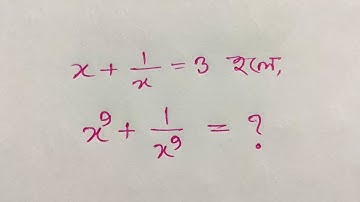 x + 1/x = 3 হলে,
x⁹ + 1/x⁹ = ?